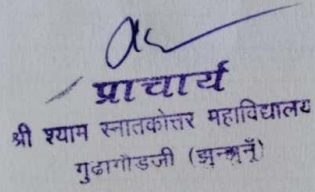 प्राचार्य
श्री श्याम स्नातकोत्तर महाविद्यालय
गुढागौडजी (झुन्झुनूँ)